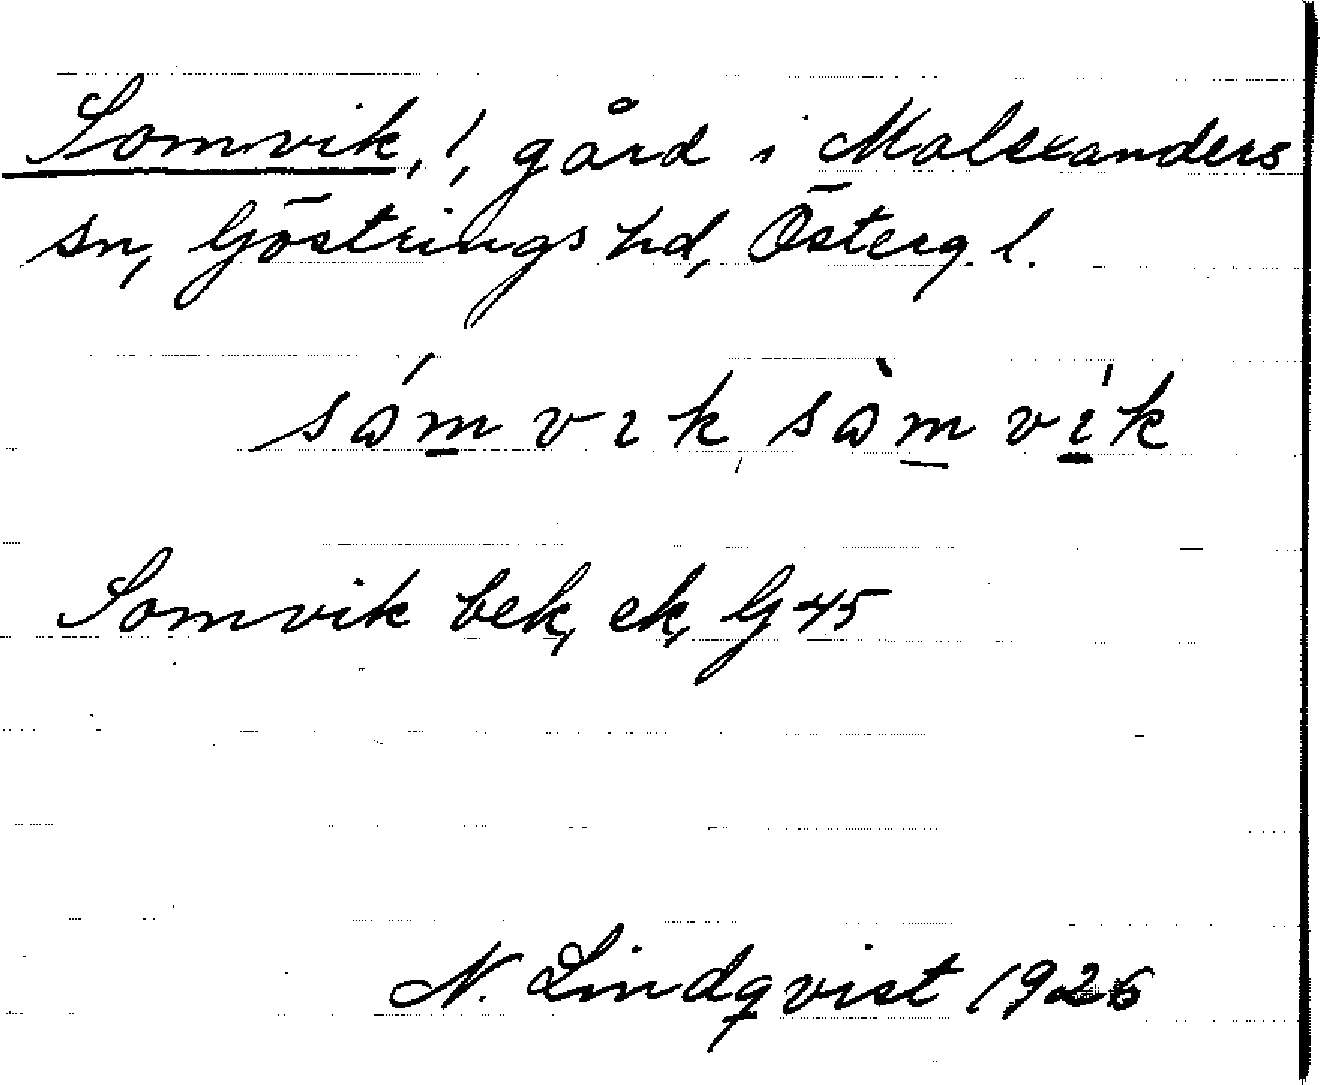 Somvik, !, gård i Malexanders
sn, Göstrings hd, Österg. l.
sómvık, sòmvík
Somvik bek, ek, G 45
N. Lindqvist 1926